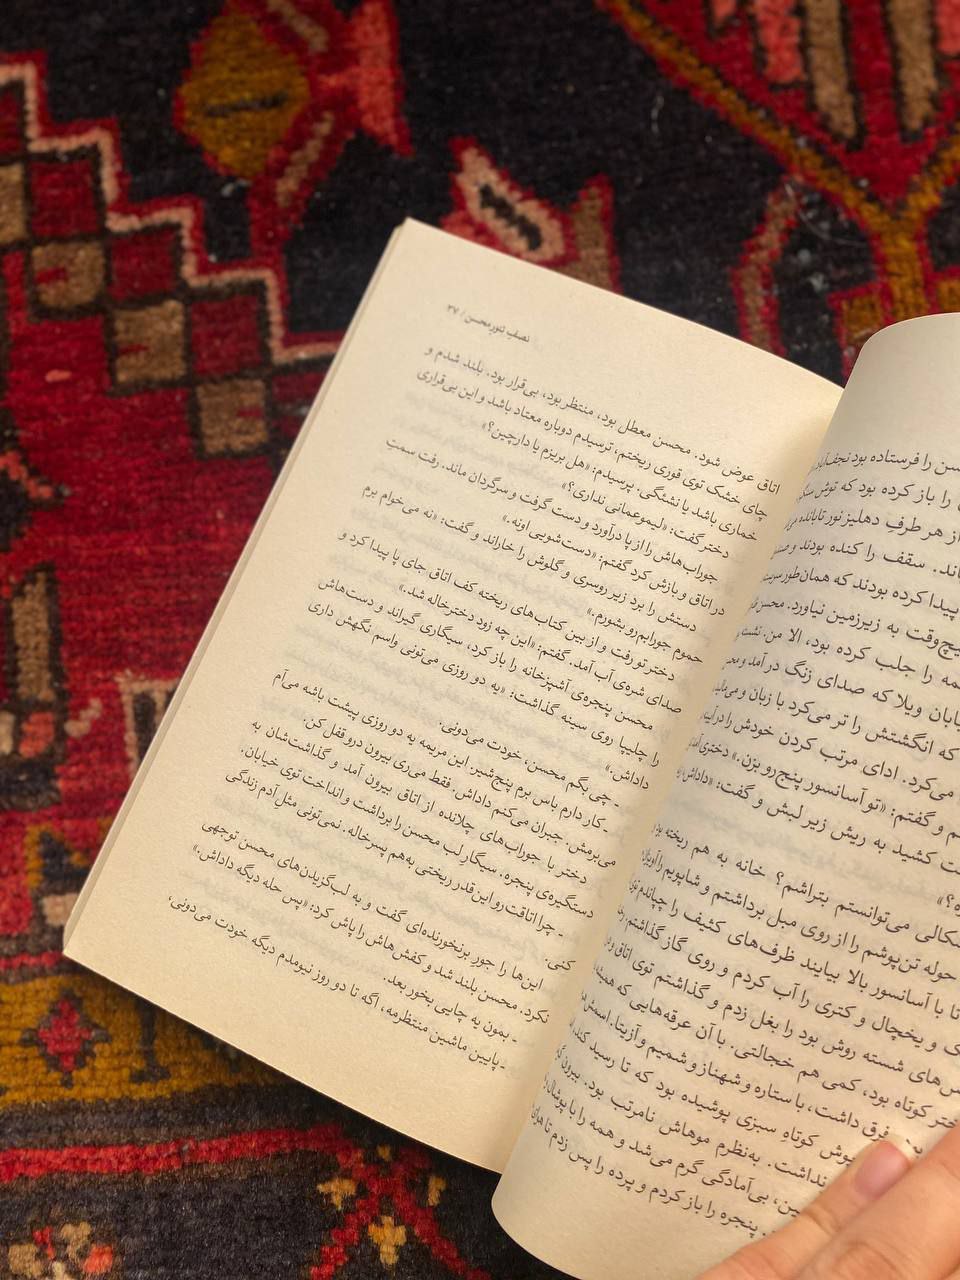 را فرستاده بود نجف‌آباد
را باز کرده بود که توش
از هر طرفِ دهلیز نور تابانده
سقف را کنده بودند و
پیدا کرده بودند که همان‌طور
به زیرزمین نیاورد. محسن
را جلب کرده بود، الا من. نشسته
ویلا که صدای زنگ در آمد و
که انگشتش را تر می‌کرد با زبان و
می‌کرد. ادای مرتب کردن خودش را
و گفتم: «تو آسانسور پنج‌رو بزن.» دختری
کشید به ریش زیر لبش و گفت: «داداش
می‌توانستم بتراشم؟ خانه به هم ریخته
حوله تن‌پوشم را از روی مبل برداشتم و شاپویم را
تا با آسانسور بالا بیایند ظرف‌های کثیف را چپاندم
و یخچال و کتری را آب کردم و روی گاز گذاشتم
شسته روش بود را بغل زدم و گذاشتم توی اتاق و
کوتاه بود، کمی هم خجالتی. با آن عرقه‌هایی که
فرق داشت، با ستاره و شهناز و شمیم و آزیتا. اسمش
کوتاهِ سبزی پوشیده بود که تا رسید
نداشت. به‌نظرم موهاش نامرتب بود. بیرون
بی‌آمادگی گرم می‌شد و همه را با
پنجره را باز کردم و پرده را پس زدم تا
نصفِ تنورِ محسن / ۳۷
اتاق عوض شود. محسن معطل بود، منتظر بود، بی‌قرار بود. بلند شدم و
چای خشک توی قوری ریختم، ترسیدم دوباره معتاد باشد و این بی‌قراری
خماری باشد یا نشئگی. پرسیدم: «هل بریزم یا دارچین؟»
دختر گفت: «لیموعمانی نداری؟»
جوراب‌هاش را از پا درآورد و دست گرفت و سرگردان ماند. رفت سمتِ
در اتاق و بازش کرد گفتم: «دست‌شویی اونه.»
دستش را برد زیر روسری و گلوش را خاراند و گفت: «نه می‌خوام برم
حموم جورابم‌رو بشورم.»
دختر تو رفت و از بین کتاب‌های ریخته کف اتاق جای پا پیدا کرد و
صدای شرهٔ آب آمد. گفتم: «این چه زود دخترخاله شد.»
محسن پنجره‌ی آشپزخانه را باز کرد، سیگاری گیراند و دست‌هاش
را چلیپا روی سینه گذاشت: «یه دو روزی می‌تونی واسم نگهش داری
داداش.»
ـ چی بگم محسن، خودت می‌دونی.
ـ کار دارم باس برم پنج‌شیر. این مریمه یه دو روزی پیشت باشه می‌آم
می‌برمش. جبران می‌کنم داداش. فقط می‌ری بیرون درو قفل کن.
دختر با جوراب‌های چلانده از اتاق بیرون آمد و گذاشت‌شان به
دستگیره‌ی پنجره. سیگار لب محسن را برداشت و انداخت توی خیابان.
ـ چرا اتاقت رو این قدر ریختی به‌هم پسرخاله. نمی‌تونی مثل آدم زندگی
کنی.
این ها را جورِ برنخورنده‌ای گفت و به لب‌گزیدن‌های محسن توجهی
نکرد. محسن بلند شد و کفش هاش را پاش کرد: «پس حله دیگه داداش.»
ـ بمون یه چایی بخور بعد.
ـ پایین ماشین منتظرمه، اگه تا دو روز نیومدم دیگه خودت می‌دونی،